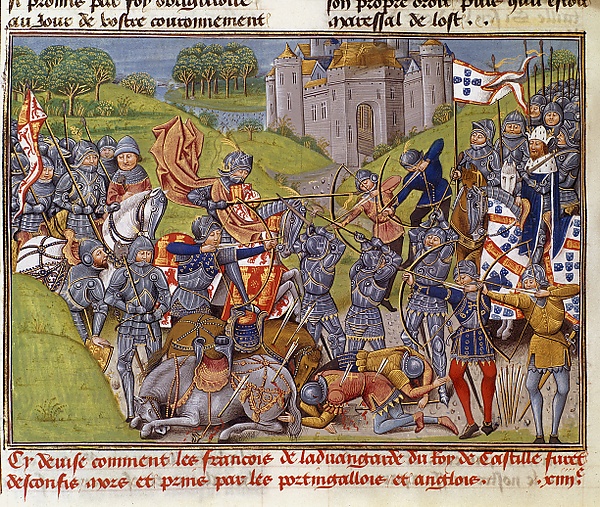 si promis par foy obligatoire
au Jour de vostre couronnement
son propre droit puis quil estoit
maressal de lost . .
Cy deuise comment les francois de laduangarde du Roy de Castille furēt
desconfis mors et prins par les portingallois et anglois . .xiiij.ᶜ